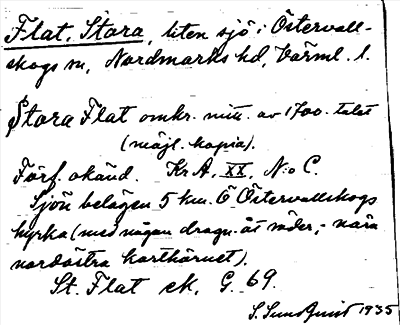 Flat, Stora, liten sjö i Östervall-
skogs sn, Nordmarks hd, Värml. l.
Stora Flat omkr. mitt. av 1700-talet
(möjl. kopia).
Förf. okänd. KrA, XX, N:o C.
Sjön belägen 5 km. Ö Östervallskogs
kyrka (med någon dragn. åt söder, - nära
nordöstra karthörnet).
St. Flat ek. G. 69.
S. Sundquist 1935